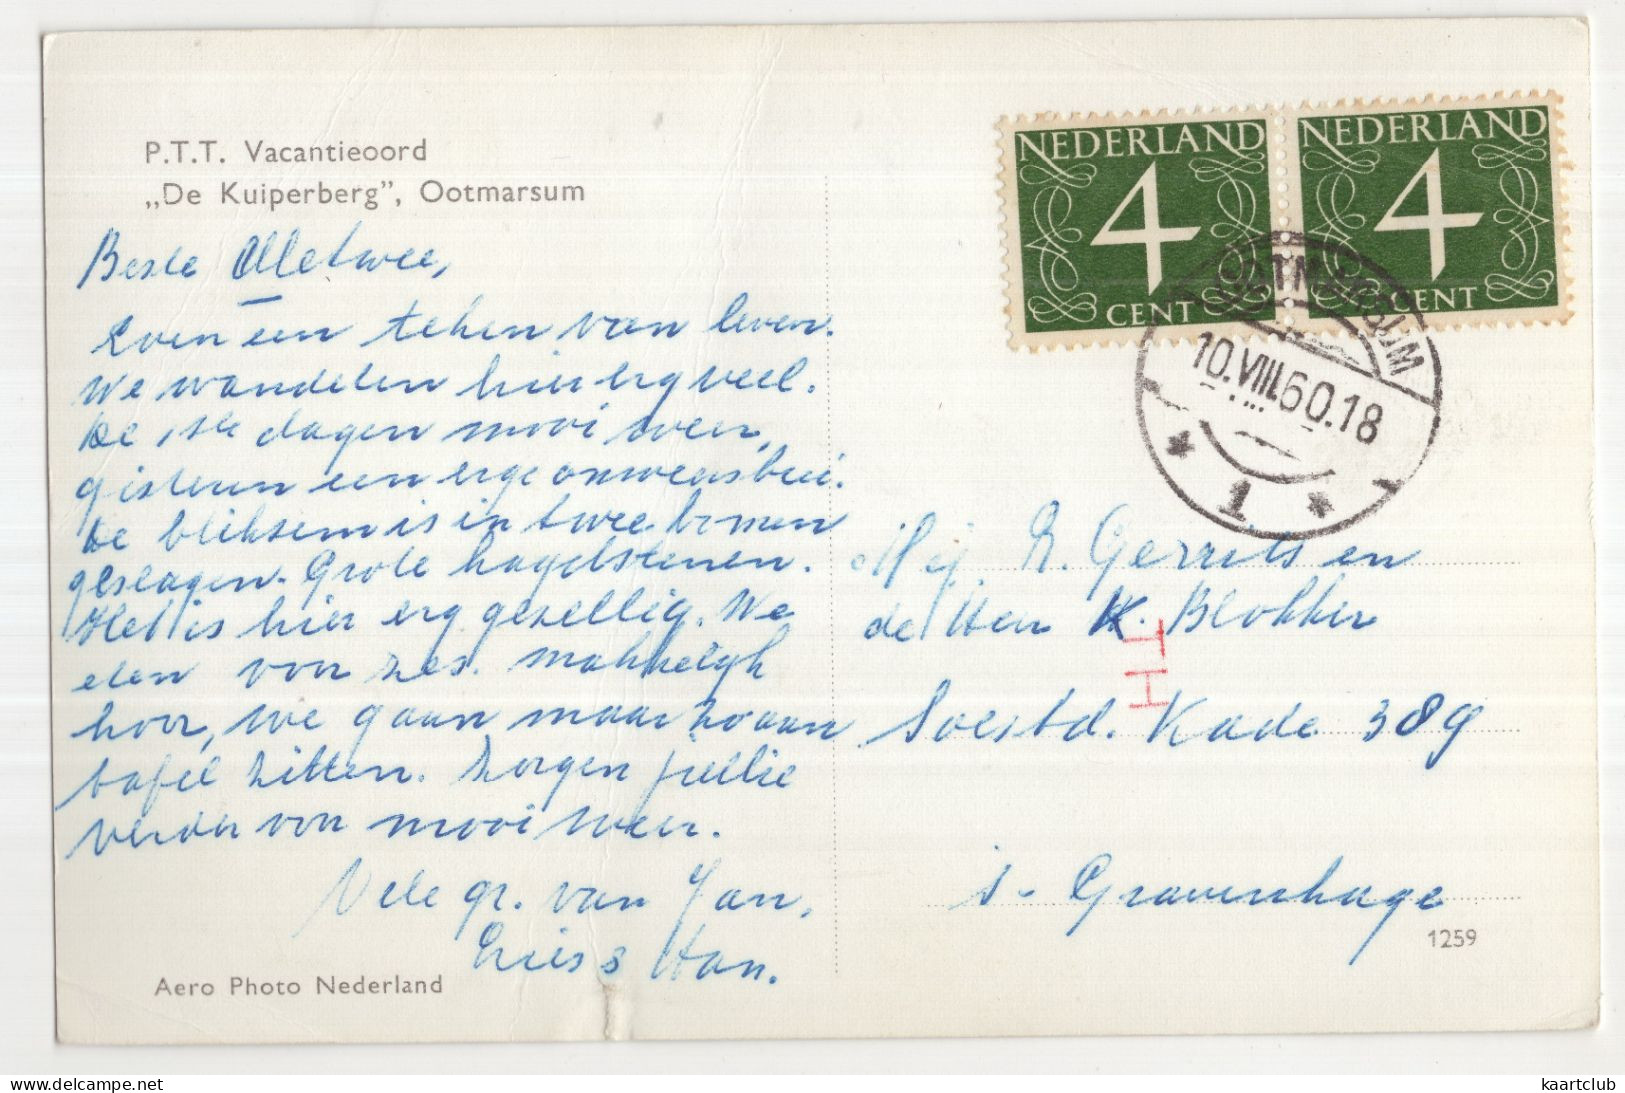 P.T.T. Vacantieoord
„De Kuiperberg”, Ootmarsum
Beste Alletwee,
Even een teken van leven.
We wandelen hier erg veel.
De 1ste dagen mooi weer,
gisteren een erge onweersbui.
De bliksem is in twee bomen
geslagen. Grote hagelstenen.
Het is hier erg gezellig. We
eten voor zes. Makkelijk
hoor, we gaan maar zo aan
tafel zitten. Zorgen jullie
verder voor mooi weer.
Vele gr. van Jan,
Han.
Aero Photo Nederland
NEDERLAND
4
CENT
NEDERLAND
4
CENT
OOTMARSUM
10.VIII.60.18
1
Mej. R. Gerritsen
de Heer K. Blokker
Soestd. Kade 389
s-Gravenhage
1259
www.delcampe.net
kaartclub